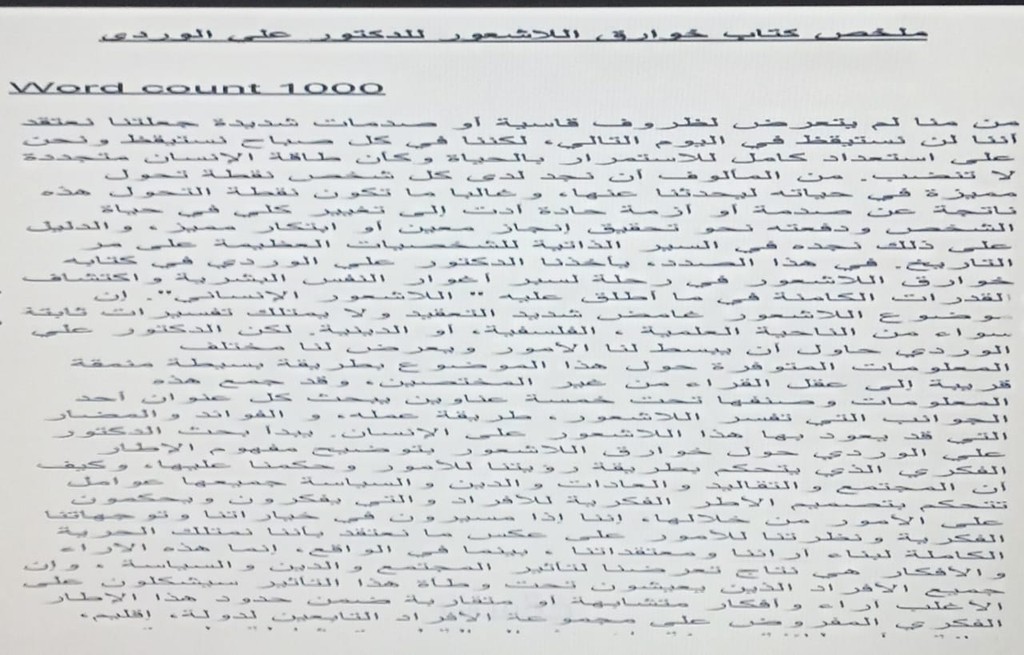 ملخص كتاب خوارق اللاشعور للدكتور علي الوردي
Word count 1000
من منا لم يتعرض لظروف قاسية أو صدمات شديدة جعلتنا نعتقد
أننا لن نستيقظ في اليوم التالي، لكننا في كل صباح نستيقظ ونحن
على استعداد كامل للاستمرار بالحياة وكأن طاقة الإنسان متجددة
لا تنضب. من المألوف أن نجد لدى كل شخص نقطة تحول
مميزة في حياته ليحدثنا عنها، و غالبا ما تكون نقطة التحول هذه
ناتجة عن صدمة أو أزمة حادة أدت إلى تغيير كلي في حياة
الشخص ودفعته نحو تحقيق إنجاز معين أو ابتكار مميز، و الدليل
على ذلك نجده في السير الذاتية للشخصيات العظيمة على مر
التاريخ. في هذا الصدد، يأخذنا الدكتور علي الوردي في كتابه
خوارق اللاشعور في رحلة لسبر أغوار النفس البشرية و اكتشاف
القدرات الكامنة في ما أطلق عليه " اللاشعور الإنساني". إن
موضوع اللاشعور غامض شديد التعقيد ولا يمتلك تفسيرات ثابتة
سواء من الناحية العلمية ، الفلسفية، أو الدينية. لكن الدكتور علي
الوردي حاول أن يبسط لنا الأمور ويعرض لنا مختلف
المعلومات المتوفرة حول هذا الموضوع بطريقة بسيطة منمقة
قريبة إلى عقل القراء من غير المختصين، و قد جمع هذه
المعلومات و صنفها تحت خمسة عناوين يبحث كل عنوان أحد
الجوانب التي تفسر اللاشعور، طريقة عمله، و الفوائد و المضار
التي قد يعود بها هذا اللاشعور على الإنسان. يبدأ بحث الدكتور
علي الوردي حول خوارق اللاشعور بتوضيح مفهوم الإطار
الفكري الذي يتحكم بطريقة رؤيتنا للأمور و حكمنا عليها، وكيف
أن المجتمع و التقاليد و العادات و الدين و السياسة جميعها عوامل
تتحكم بتصميم الأطر الفكرية للأفراد و التي يفكرون و يحكمون
على الأمور من خلالها، إننا إذا مسيرون في خياراتنا و توجهاتنا
الفكرية و نظرتنا للأمور على عكس ما نعتقد بأننا نمتلك الحرية
الكاملة لبناء آراننا و معتقداتنا ، بينما في الواقع، إنما هذه الآراء
و الأفكار هي نتاج تعرضنا لتأثير المجتمع و الدين و السياسة ، و إن
جميع الأفراد الذين يعيشون تحت وطأة هذا التأثير سيشكلون على
الأغلب آراء و أفكار متشابهة أو متقاربة ضمن حدود هذا الإطار
الفكري المفروض على مجموعة الأفراد التابعين لدولة، إقليم،